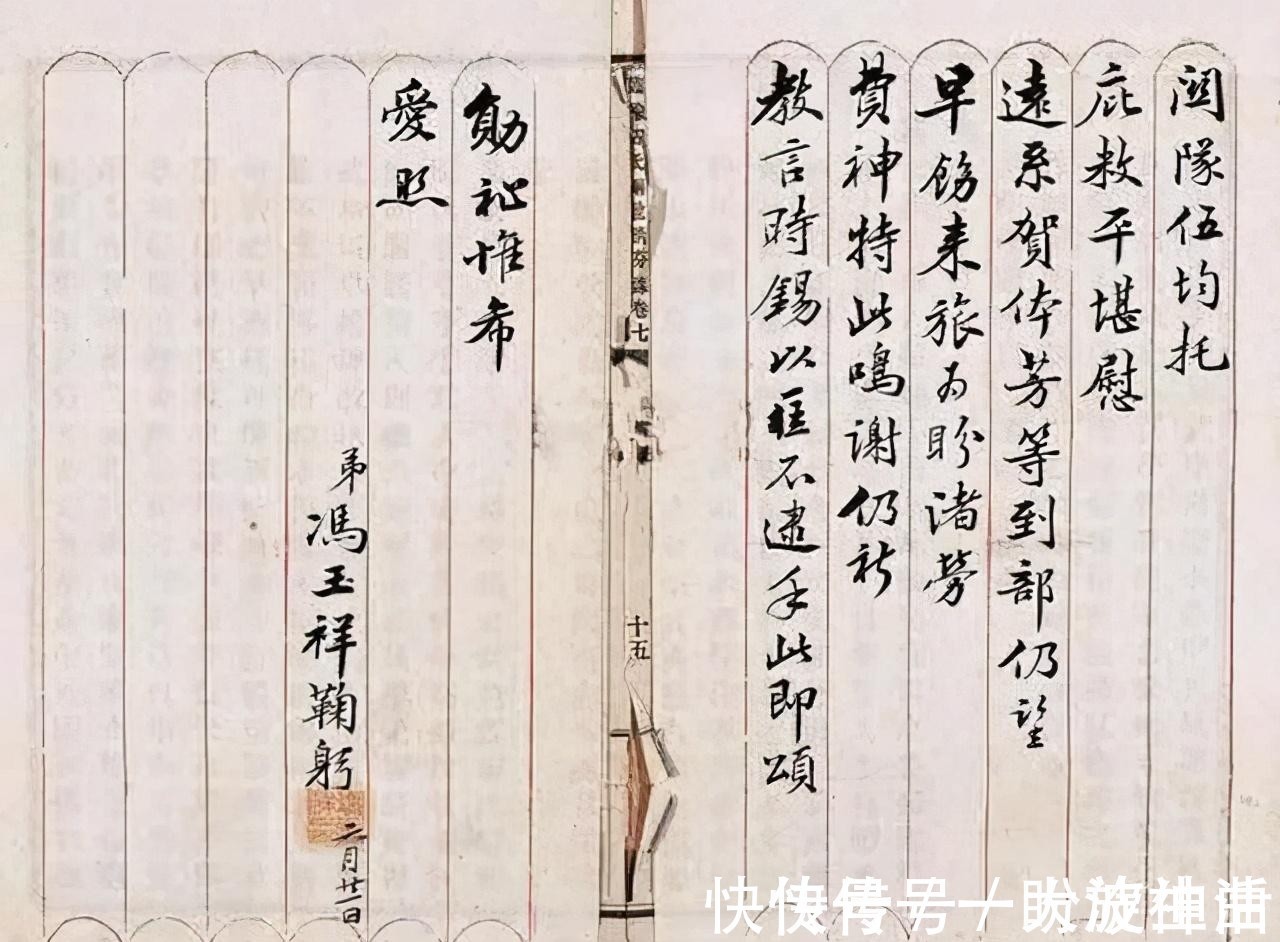 關隊伍均托
庇救平堪慰
遠系賀体芳等到部仍望
早飭來旅為盼諸勞
費神特此鳴謝仍祈
教言時錫以匡不逮手此即頌
勛祉惟希
愛照
弟馮玉祥鞠躬
二月廿一日
卷七
十五